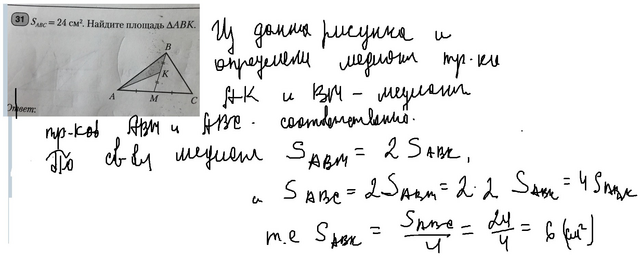 31 S_ABC = 24 см². Найдите площадь ΔABK.
B
K
A M C
Ответ:
Из данна рисунка и
определени медиан тр-ки
AK и BM – медианы
тр-ков ABM и ABC. соответственно.
По св-ву медиан S_ABM = 2 S_ABK,
и S_ABC = 2 S_ABM = 2 · 2 S_ABK = 4 S_ABK
т.е S_ABK = S_ABC / 4 = 24 / 4 = 6 (см²)